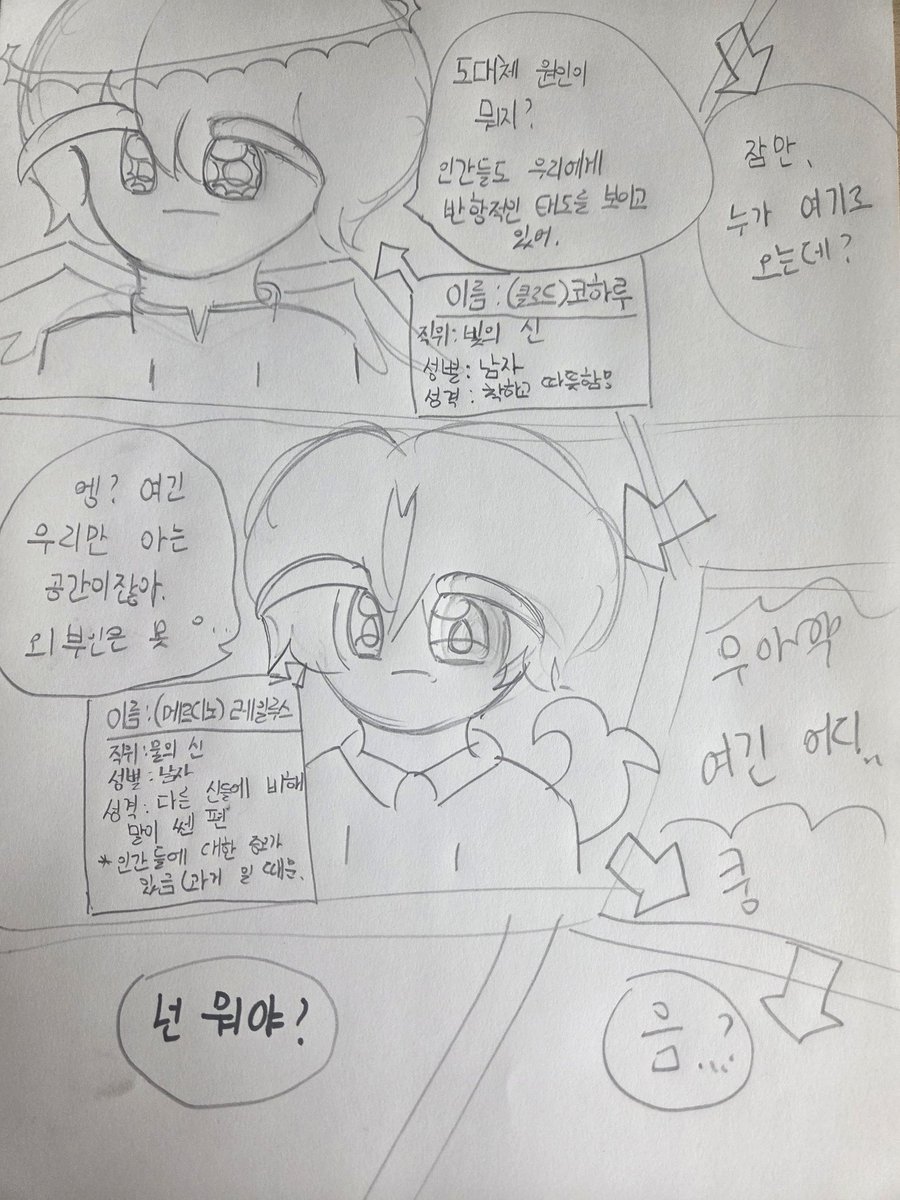 도대체 원인이
뭐지?
인간들도 우리에게
반항적인 태도를 보이고
있어.
이름 : (클로드) 코하루
직위 : 빛의 신
성별 : 남자
성격 : 착하고 따뜻함
잠만,
누가 여기로
오는데?
엥? 여긴
우리만 아는
공간이잖아.
외부인은 못
이름 : (메르디노) 레일루스
직위 : 물의 신
성별 : 남자
성격 : 다른 신들에 비해
말이 쎈 편
* 인간들에 대한 증오가
있음 (과거 일 때문.
우아악
여긴 어디..
쿵
음...?
넌 뭐야?